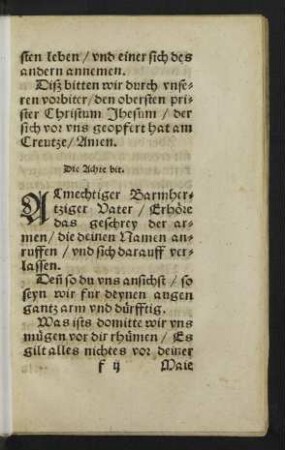 sten leben / vnd einer sich des
andern annemen.
Disz bitten wir durch vnse-
ren vorbiter / den obersten pri-
ster Christum Jhesum / der
sich vor vns geopfert hat am
Creutze / Amen.
Die Achte bit.
ALmechtiger Barmher-
tziger Vater / Erhöre
das geschrey der ar-
men / die deinen Namen an-
ruffen / vnd sich darauff ver-
lassen.
Deñ so du vns ansichst / so
seyn wir fur deynen augen
gantz arm vnd dürfftig.
Was ists domitte wir vns
mügen vor dir rhümen / Es
gilt alles nichtes vor deiner
f ij Maie